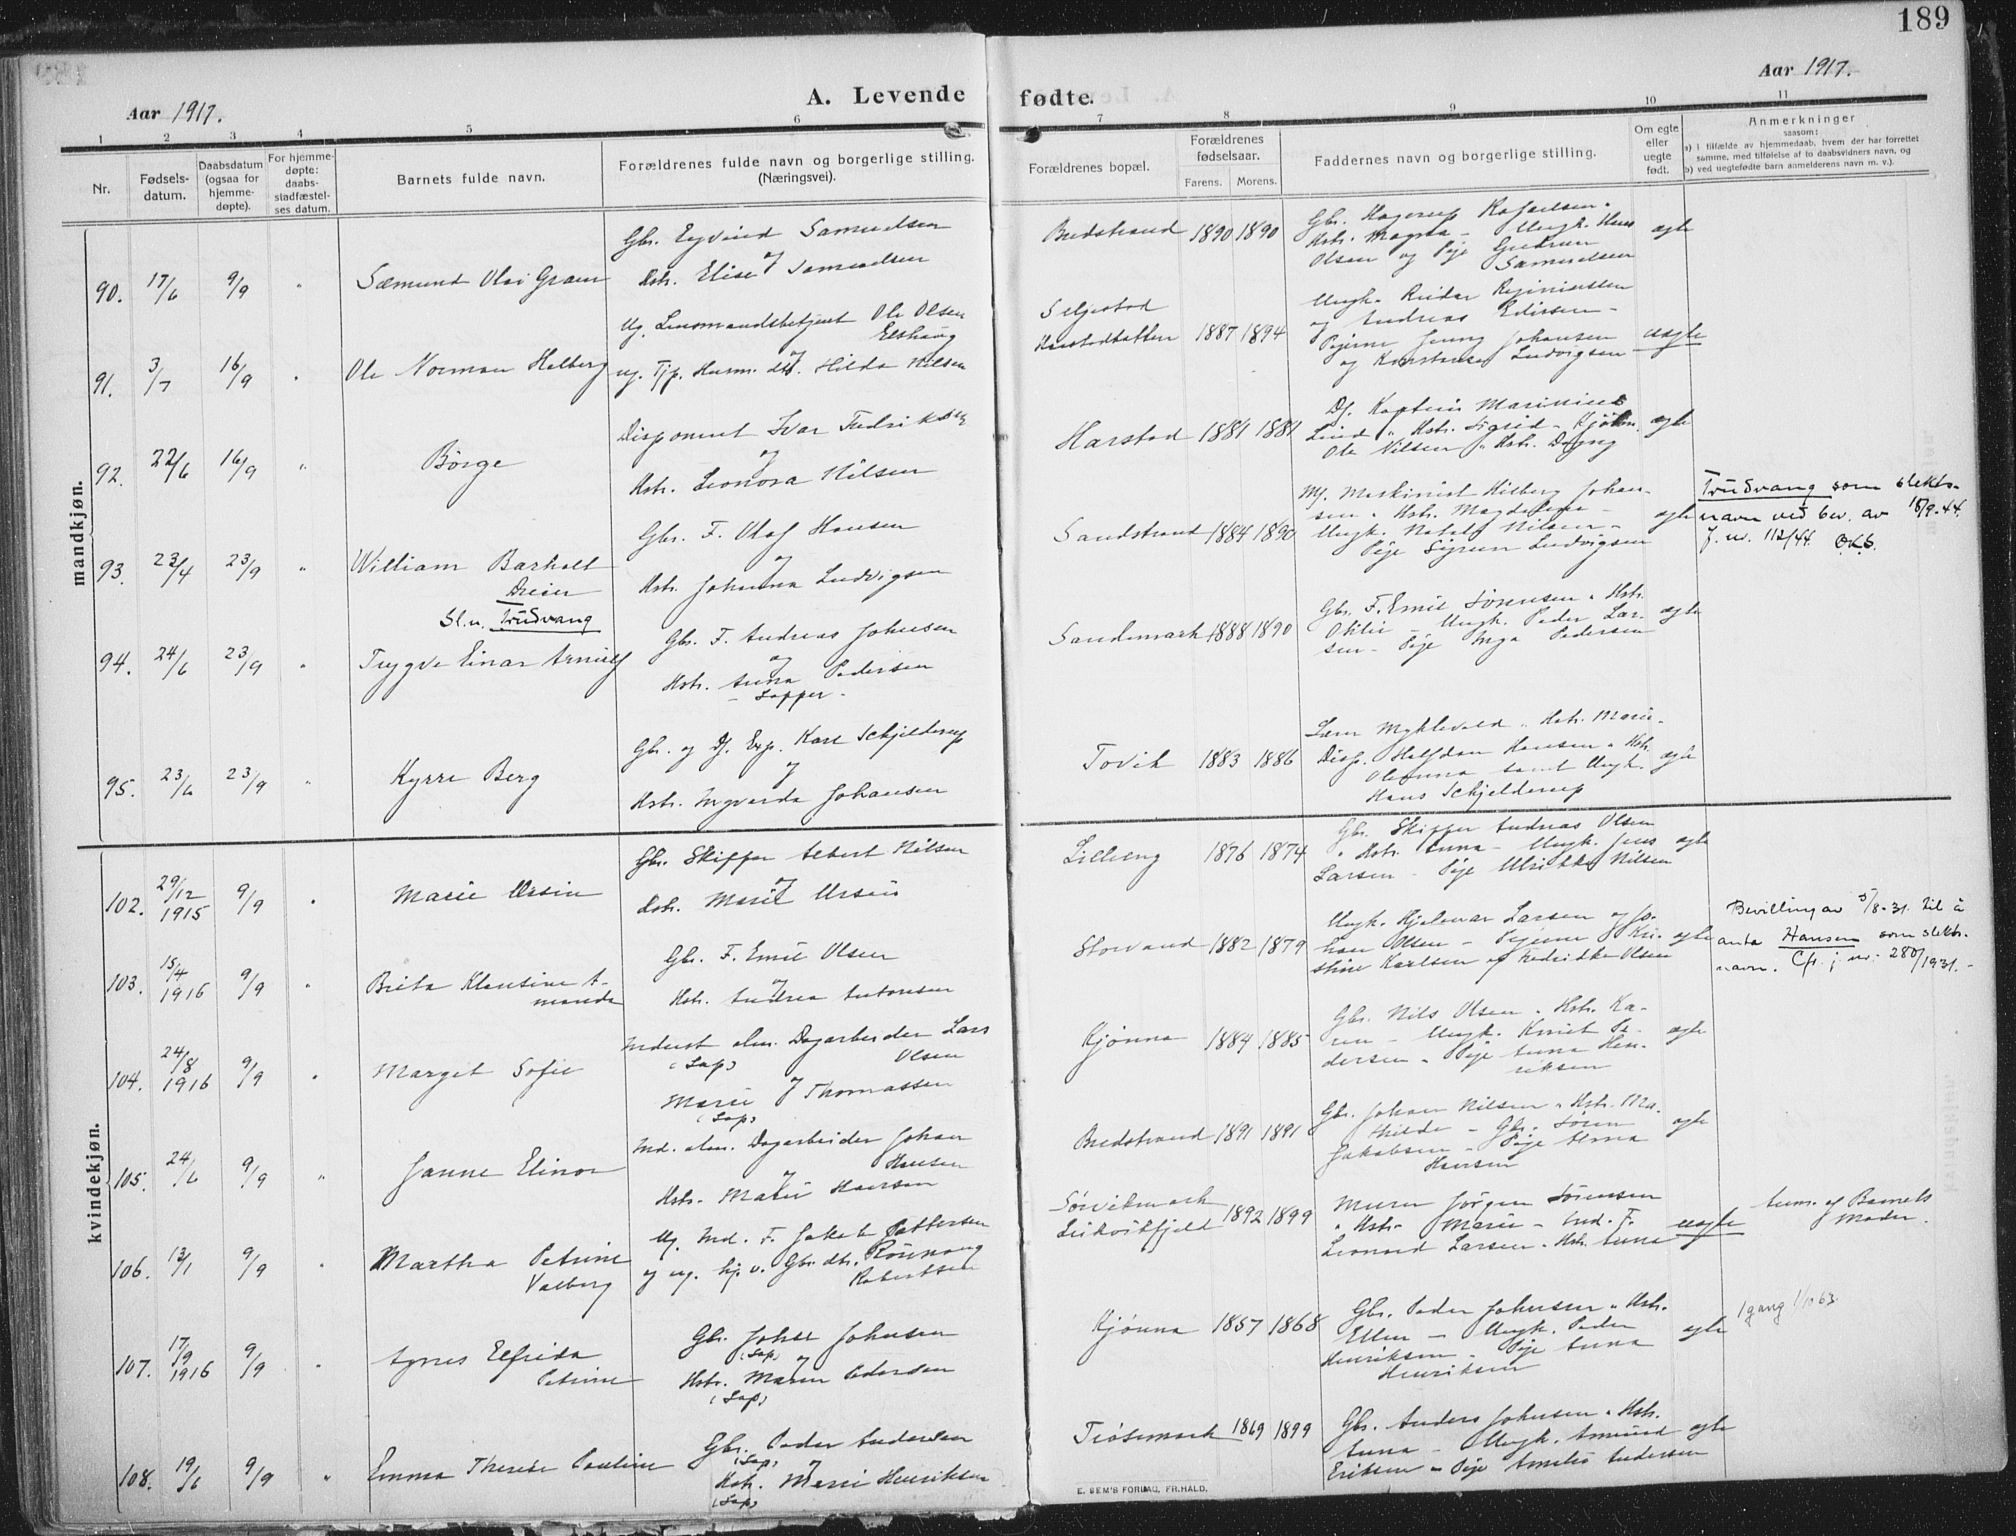 189
Aar 1917.
A. Levende
fødte.
Aar 1917.
1 2 3 4 5 6 7 8 9 10 11
Nr.
Fødsels-
datum.
Daabsdatum
(ogsaa for
hjemme-
døpte).
For hjemme-
døpte:
daabs-
stadfæstel-
ses datum.
Barnets fulde navn.
Forældrenes fulde navn og borgerlige stilling.
(Næringsvei).
Forældrenes bopæl.
Forældrenes
fødselsaar.
Farens. Morens.
Faddernes navn og borgerlige stilling.
Om egte
eller
uegte
født.
Anmerkninger
saasom:
a) i tilfælde av hjemmedaab, hvem der har forrettet
samme, med tilføielse af to daabsvidners navn, og
b) ved uegtefødte barn anmelderens navn m. v.).
mandkjøn.
90. 17/6 9/9 "
Gbr. Eyvind Samuelsen
og
Hstr. Elise Samuelsen
Bredstrand 1890 1890
Olsen og Pige Gudrun
Samuelsen
ægte
91. 3/7 16/9 "
Ole Norman Holberg
Ug. Lensmandsbetjent Ole Olsen
Elshaug
og
ug. Tjp. Husm. dtr. Hilda Nilsen
Seljestad
Harstadbotten 1887 1894
Pigerne Jenny Johansen
og Konstanse Ludvigsen
uægte
92. 22/6 16/9 "
Børge
Disponent Ivar Fredriksen
og
Hstr. Leonora Nilsen
Harstad 1881 1881
Df. Kaptein Marinius
Lind " Hstr. Sigrid - Kjøbm.
Ole Nilsen " Hstr. Dagny
ægte
93. 23/4 23/9 "
William Barholt
Dreier
Sl.n. Trudvang
Gbr. F. Olaf Hansen
og
Hstr. Johanna Ludvigsen
Sandstrand 1884 1890
sen " Hstr. Magdalena -
Ungk. Natal Nilsen -
Pige Sigrun Ludvigsen
ægte
Trudvang som slekts-
navn ved bev. av 18/9-44.
j. nr. 112/44.
94. 24/6 23/9 "
Trygve Einar Arnulf
Gbr. F. Andreas Johnsen
og
Hstr. Anna Pedersen
- Lapper -
Sandemark 1888 1890
Gbr. F. Emil Sørensen " Hstr.
Otilie - Ungk. Peder Lar-
sen - Pige Inga Pedersen
ægte
95. 23/6 23/9 "
Kyrre Berg
Gbr. og Df. Exp. Karl Schjelderup
og
Hstr. Ingvarda Johansen
Tovik 1883 1886
Disp. Halfdan Hansen " Hstr.
samt Ungk.
Hans Schjelderup
ægte
kvindekjøn.
102. 29/12
1915 9/9 "
Marie Ursin
Gbr. Skipper Albert Nilsen
og
Hstr. Marie Ursin
Lilleeng 1876 1874
Gbr. Skipper Andreas Olsen
" Hstr. Anna - Ungk. Jens
Larsen - Pige Ulrikke Nilsen
ægte
103. 15/4
1916 9/9 "
Brita Klausine A-
manda
Gbr. F. Emil Olsen
og
Hstr. Andrea Antonsen
Storvand 1882 1879
Ungk. Hjalmar Larsen og Jo-
han Olsen - Pigerne Kri-
stine Karlsen og Fredrikke Olsen
ægte
Bevilling av 5/8-31. til å
anta Hansen som slekts-
navn. Cfr. j. nr. 280/1931.-
104. 24/8
1916 9/9 "
Margit Sofie
Inderst alm. Dagarbeider Lars
(Lap) Olsen
og
Marie Thomassen
(Lap)
Kjønna 1884 1885
Gbr. Nils Olsen " Hstr. Ka-
ren - Ungk. Knut Pe-
dersen - Pige Anna Hen-
riksen
ægte
105. 24/6 9/9 "
Janne Elinor
Ind. alm. Dagarbeider Johan
Hansen
og
Hstr. Marie Hansen
Bredstrand 1891 1891
Gbr. Johan Nilsen " Hstr. Ma-
thilde - Gbr. Søren
Jakobsen - Pige Alma
Hansen
ægte
106. 13/1 9/9 "
Martha Petrine
Valberg
Ug. Ind. F. Jakob Pettersen
og ug. hj. v. Gbr. dtr. Rønnaug
Robertsen
Sørvikmark
1892 1899
Murer Jørgen Sørensen
" Hstr. Marie - Ind. F.
Leonard Larsen " Hstr. Anna
uægte
Anm. af Barnets
Moder.
107. 17/9
1916 9/9 "
Agnes Elfrida
Petrine
Gbr. Johse Johnsen
(Lap)
og
Hstr. Maren Pedersen
(Lap)
Kjønna 1857 1868
Gbr. Peder Johnsen " Hstr.
Ellen - Ungk. Peder
Henriksen - Pige Anna
Henriksen
ægte
1 gang 1/10 63.
108. 19/6 9/9 "
Emma Therese Pauline
Gbr. Peder Andersen
(Lap)
og
Hstr. Marie Henriksen
(Lap)
Trøsemark 1869 1899
Gbr. Anders Johnsen " Hstr.
Anna - Ungk. Amund
Eriksen - Pige Andersen
ægte
E. SEM'S FORLAG, FR.HALD.